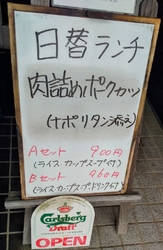 日替ランチ
肉詰めポークカツ
(ナポリタン添え)
Aセット 900円
(ライス カップスープ付)
Bセット 960円
(ライスカップスープドリンク付)
Carlsberg
Draft
OPEN